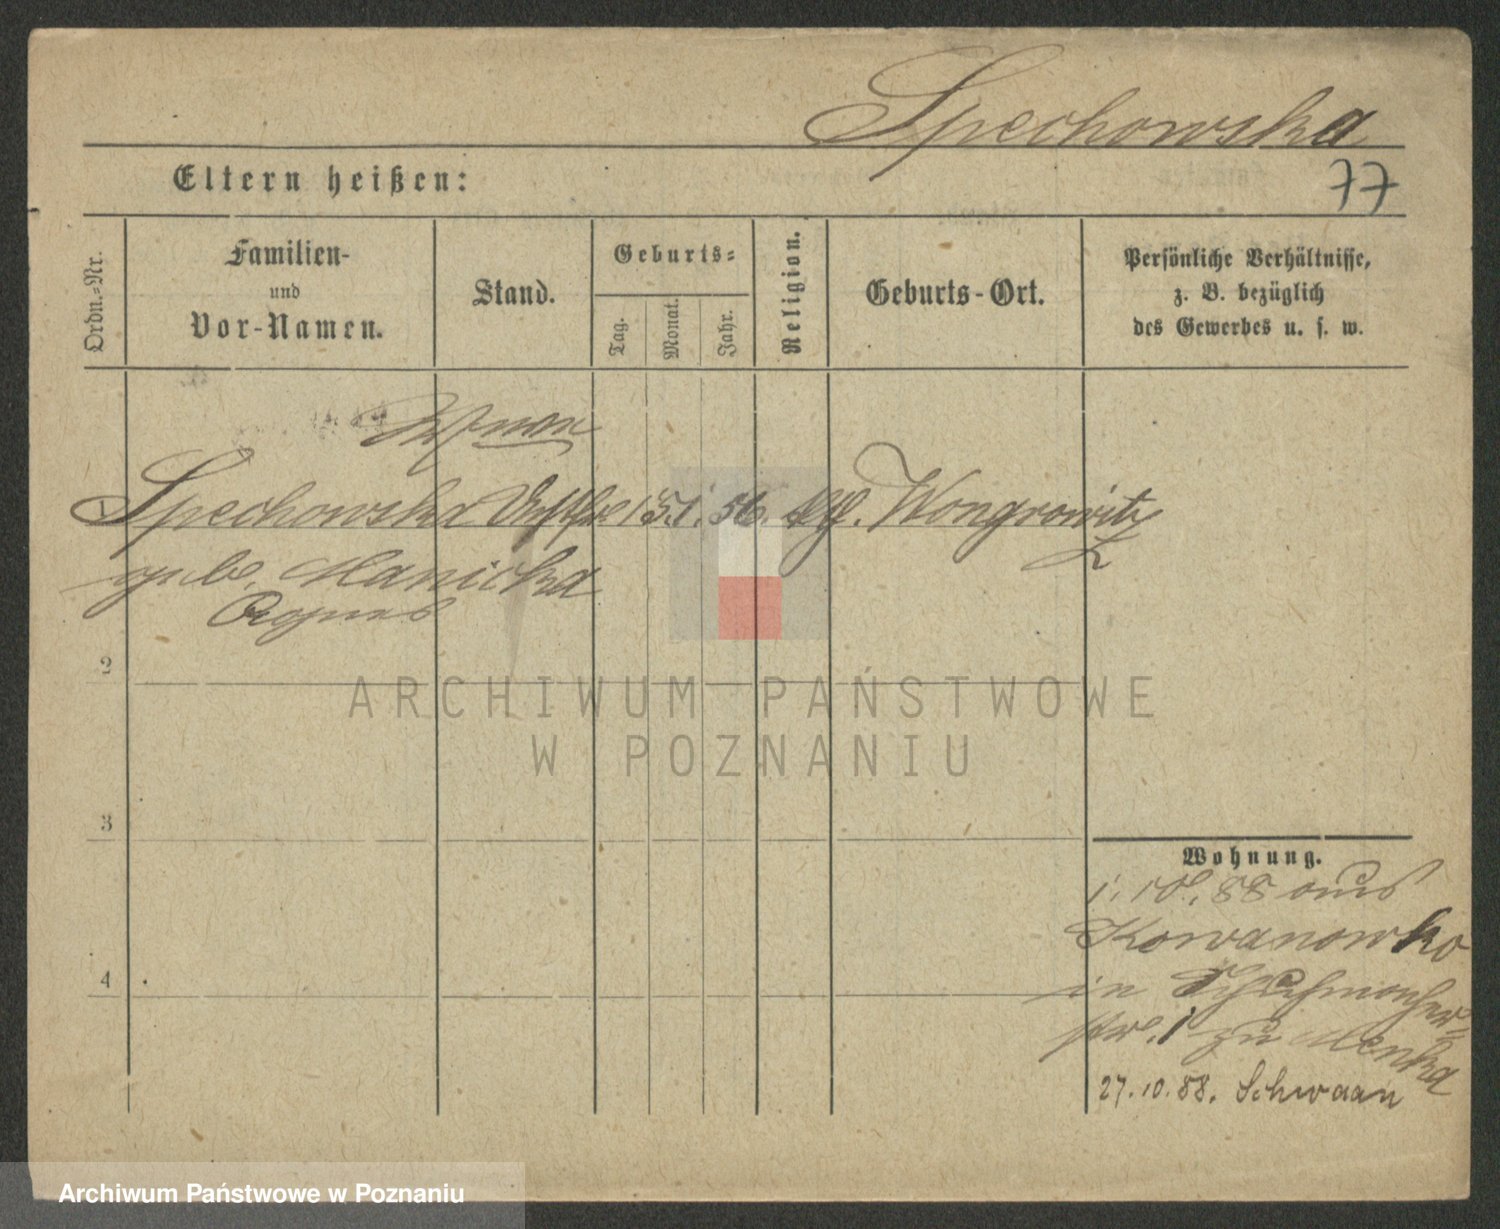 Spechowska
77
Eltern heißen:
Ordn.-Nr.
Familien-
und
Vor-Namen.
Stand.
Geburts-
Tag.
Monat.
Jahr.
Religion.
Geburts-Ort.
Persönliche Verhältnisse,
z. B. bezüglich
des Gewerbes u. s. w.
Spechowska 15. 1. 56. Wongrowitz
geb. Manicka
Agnes
2
3
4
Wohnung.
1. 10. 88 aus
Kowanowko
in Schuhmacher-
str. 1 zu Menka
27. 10. 88. Schwaan
ARCHIWUM PAŃSTWOWE
W POZNANIU
Archiwum Państwowe w Poznaniu